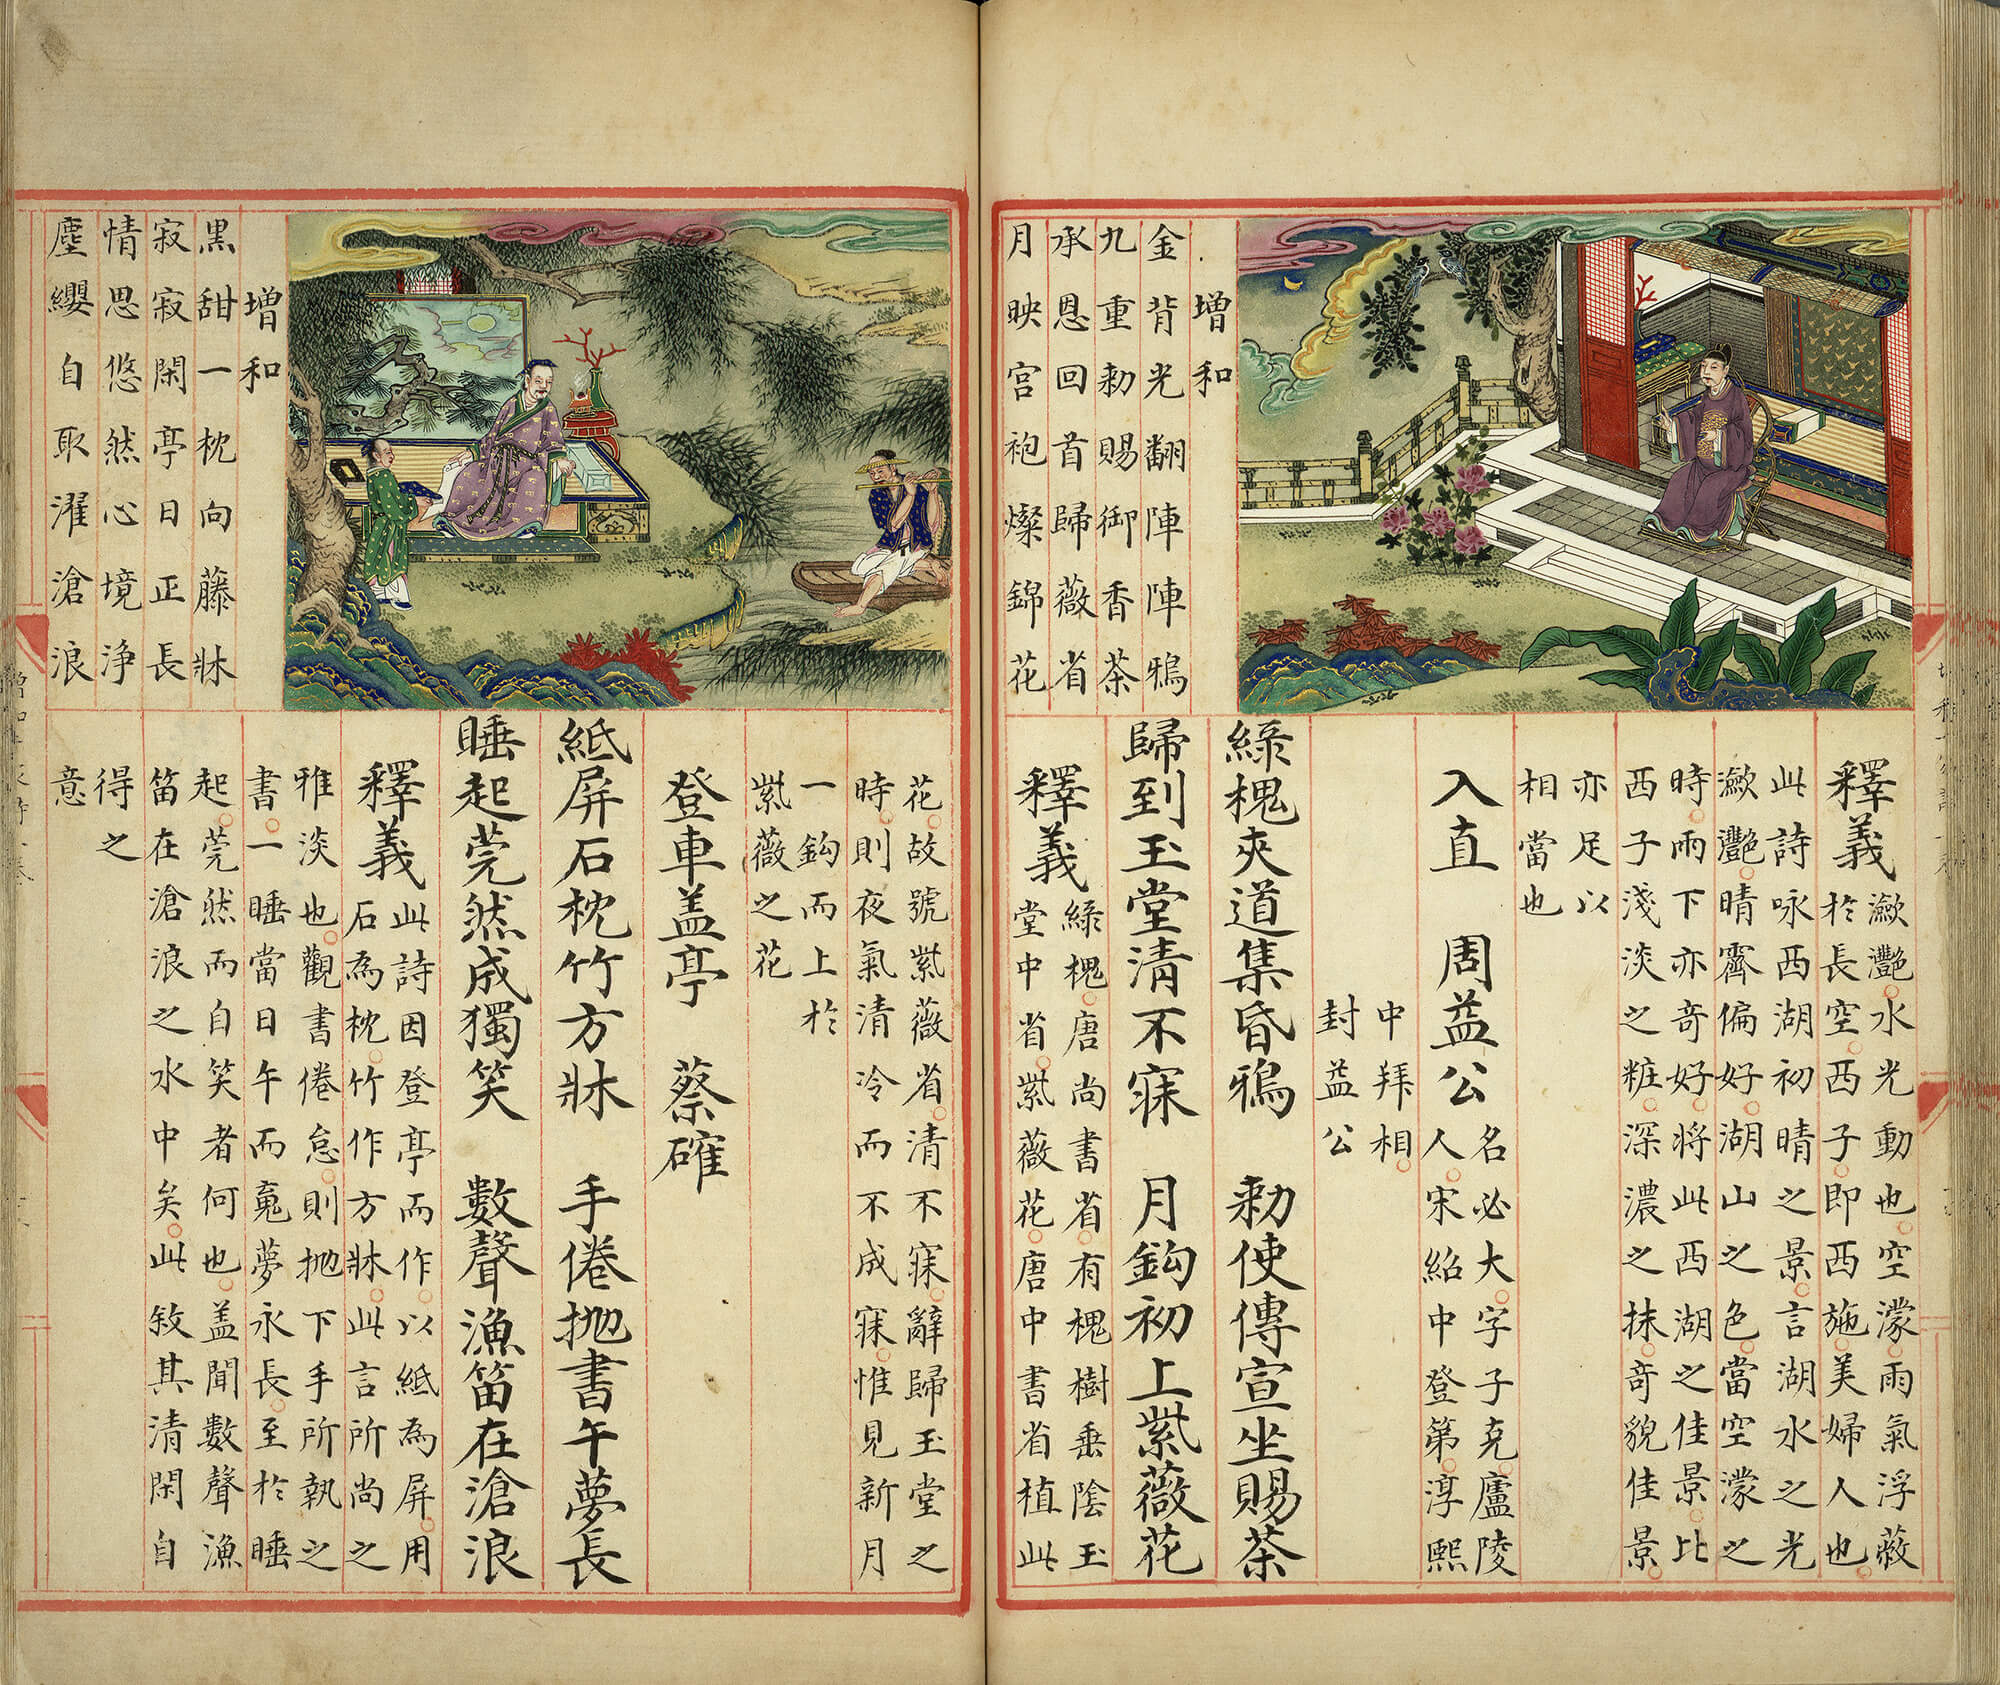 增和
金背光翻陣陣鴉
九重勅賜御香茶
承恩回首歸薇省
月映宮袍燦錦花
釋義 瀲灧。水光動也。空濛。雨氣浮蔽
於長空。西子。即西施。美婦人也。
此詩咏西湖初晴之景。言湖水之光
瀲灧。晴霽偏好。湖山之色。當空濛之
時。雨下亦奇好。將此西湖之佳景。比
西子淺淡之粧。深濃之抹。奇貌佳景。
亦足以
相當也
入直 周益公 名必大。字子克。廬陵
人。宋紹中登第。淳熙
中拜相。
封益公
綠槐夾道集昏鴉 勅使傳宣坐賜茶
歸到玉堂清不寐 月鈎初上紫薇花
釋義 綠槐。唐尚書省。有槐樹垂陰玉
堂中省。紫薇花。唐中書省植此
增和
黑甜一枕向藤牀
寂寂閑亭日正長
情思悠然心境淨
塵纓自取濯滄浪
花。故號紫薇省。清不寐。辭歸玉堂之
時。則夜氣清冷而不成寐。惟見新月
一鈎而上於
紫薇之花
登車盖亭 蔡確
紙屏石枕竹方牀 手倦抛書午夢長
睡起莞然成獨笑 數聲漁笛在滄浪
釋義 此詩因登亭而作。以紙為屏。用
石為枕。竹作方牀。此言所尚之
雅淡也。觀書倦怠。則抛下手所執之
書。一睡當日午而䰟夢永長。至於睡
起。莞然而自笑者何也。盖聞數聲漁
笛在滄浪之水中矣。此敘其清閑自
得之
意